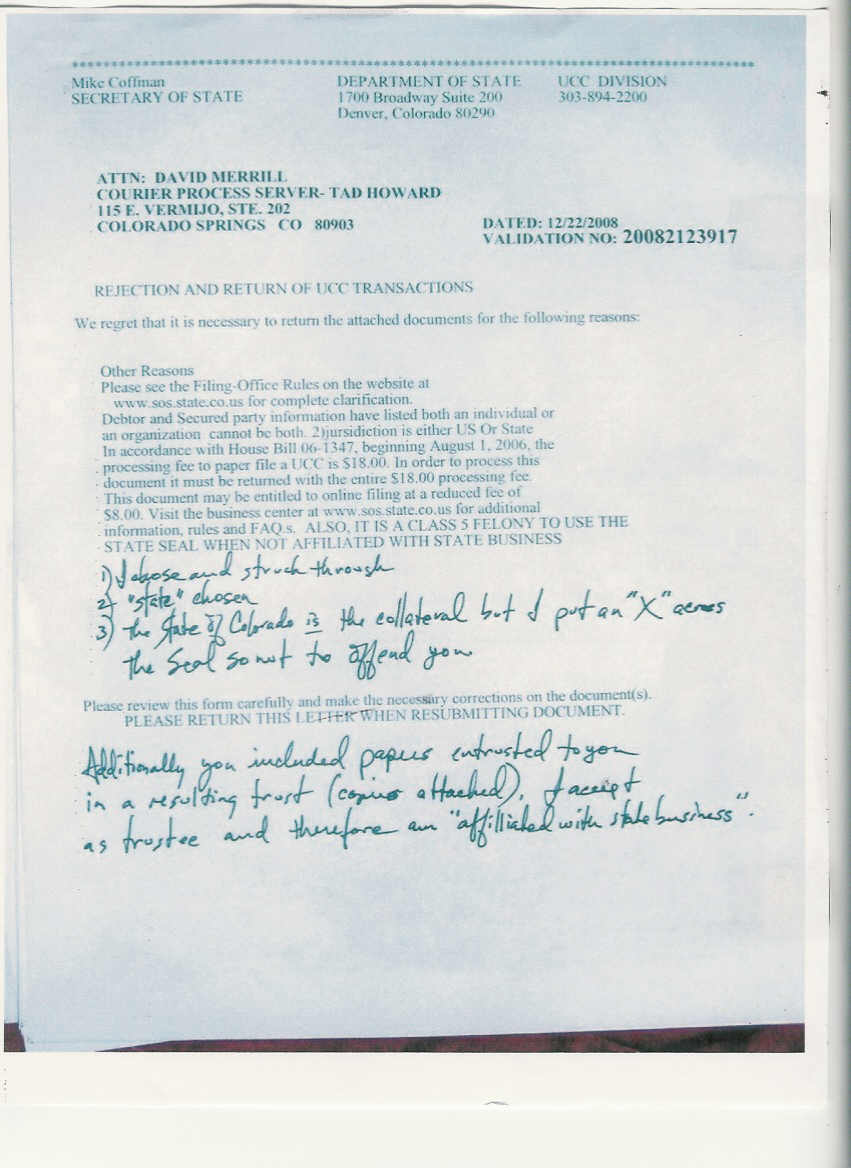 ************************************************************************************
Mike Coffman DEPARTMENT OF STATE UCC DIVISION
SECRETARY OF STATE 1700 Broadway Suite 200 303-894-2200
Denver, Colorado 80290
ATTN: DAVID MERRILL
COURIER PROCESS SERVER- TAD HOWARD
115 E. VERMIJO, STE. 202
COLORADO SPRINGS CO 80903
DATED: 12/22/2008
VALIDATION NO: 20082123917
REJECTION AND RETURN OF UCC TRANSACTIONS
We regret that it is necessary to return the attached documents for the following reasons:
Other Reasons
Please see the Filing-Office Rules on the website at
www.sos.state.co.us for complete clarification.
Debtor and Secured party information have listed both an individual or
an organization cannot be both. 2)jursidiction is either US Or State
In accordance with House Bill 06-1347, beginning August 1, 2006, the
processing fee to paper file a UCC is $18.00. In order to process this
document it must be returned with the entire $18.00 processing fee.
This document may be entitled to online filing at a reduced fee of
$8.00. Visit the business center at www.sos.state.co.us for additional
information, rules and FAQ.s. ALSO, IT IS A CLASS 5 FELONY TO USE THE
STATE SEAL WHEN NOT AFFILIATED WITH STATE BUSINESS
1) I chose and struck through
2) "state" chosen
3) the State of Colorado is the collateral but I put an "X" across
the Seal so not to offend you.
Please review this form carefully and make the necessary corrections on the document(s).
PLEASE RETURN THIS LETTER WHEN RESUBMITTING DOCUMENT.
Additionally you included papers entrusted to you
in a resulting trust (copies attached), I accept
as trustee and therefore am "affilliated with state business".